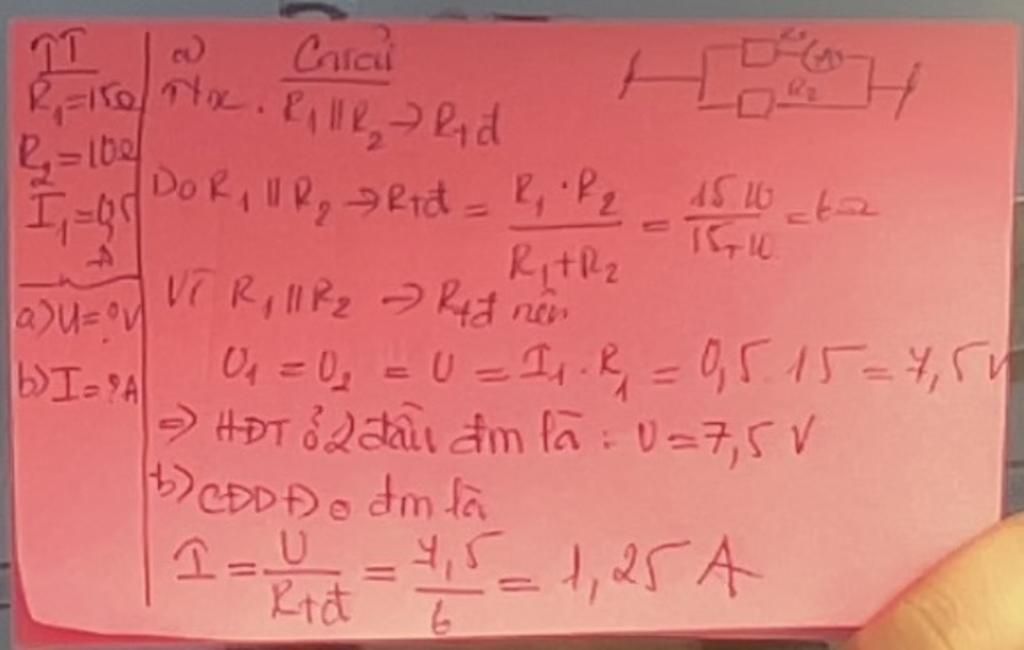 TT
R₁=15Ω
R₂=10Ω
I₁=0,5
A
a) U=?V
b) I=?A
a) Giải
R₁//R₂ → Rtđ
R₂
Do R₁ // R₂ → Rtđ = R₁.R₂ / R₁+R₂ = 15.10 / 15+10 = 6Ω
Vì R₁//R₂ → Rtđ nên
U₁ = U₂ = U = I₁.R₁ = 0,5.15 = 7,5V
=> HĐT ở 2 đầu đm là : U=7,5 V
b) CĐDĐ đm là
I = U / Rtđ = 7,5 / 6 = 1,25 A